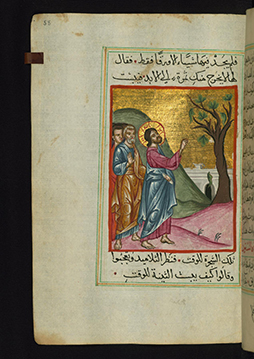 فلم يجد فيها شيئًا الا ورقًا فقط. فقال
لها لا يخرج منك ثمرة الى الابد. فيبست
تلك الشجرة للوقت. فنظر التلاميذ وتعجبوا
وقالوا كيف يبست التينة للوقت